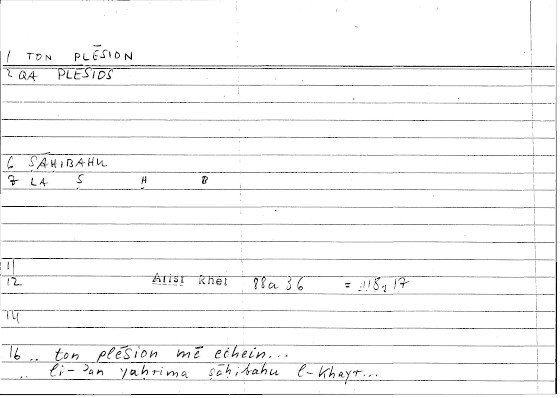 1 TON PLĒSION
2 QA PLĒSIOS
6 ṢĀḤIBAHU
7 LA Ṣ Ḥ B
11
12 Arist Rhet 88a 36 = 118,17
14
16 .. ton plēsion mē echein...
.. li-ʾan yaḥrima ṣāḥibahu l-khayr...